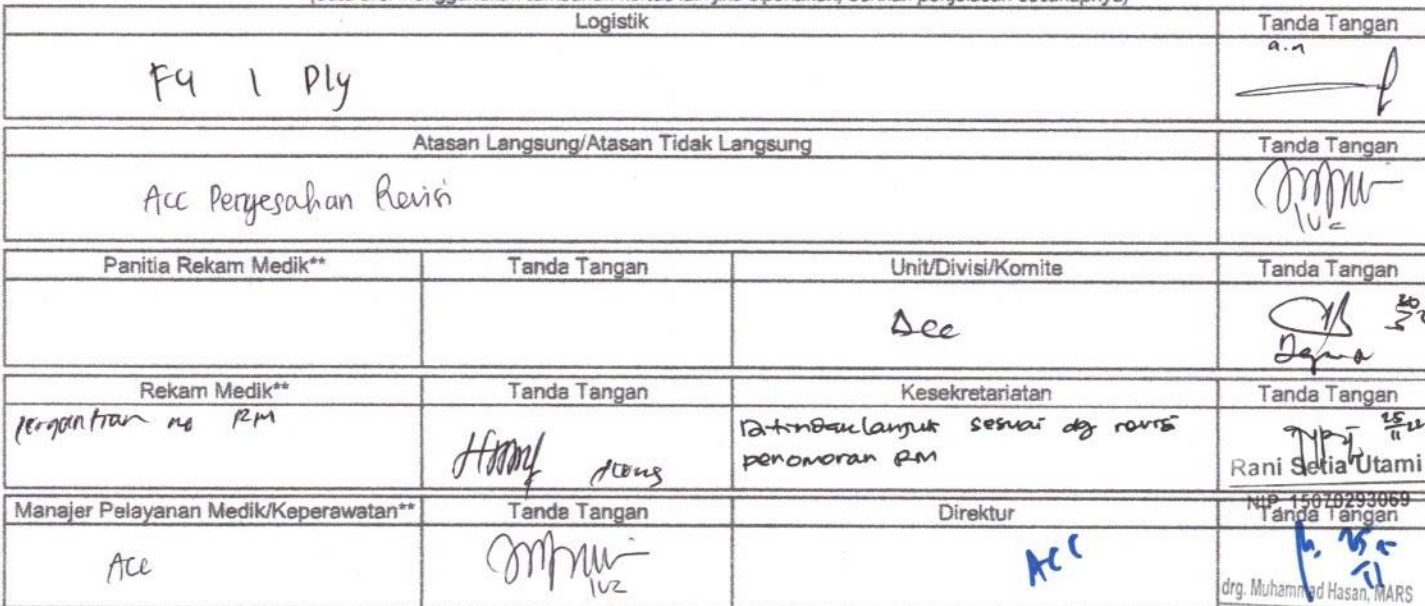 Logistik Tanda Tangan
F4 1 Ply a.n
Atasan Langsung/Atasan Tidak Langsung Tanda Tangan
Acc Pengesahan Revisi
Panitia Rekam Medik** Tanda Tangan Unit/Divisi/Komite Tanda Tangan
Acc
Rekam Medik** Tanda Tangan Kesekretariatan Tanda Tangan
pergantian no RM Ditindaklanjut sesuai dg revisi 25/11 22
penomoran RM
Rani Setia Utami
NIP 15070293069
Manajer Pelayanan Medik/Keperawatan** Tanda Tangan Direktur Tanda Tangan
Acc ACC
drg. Muhammad Hasan, MARS